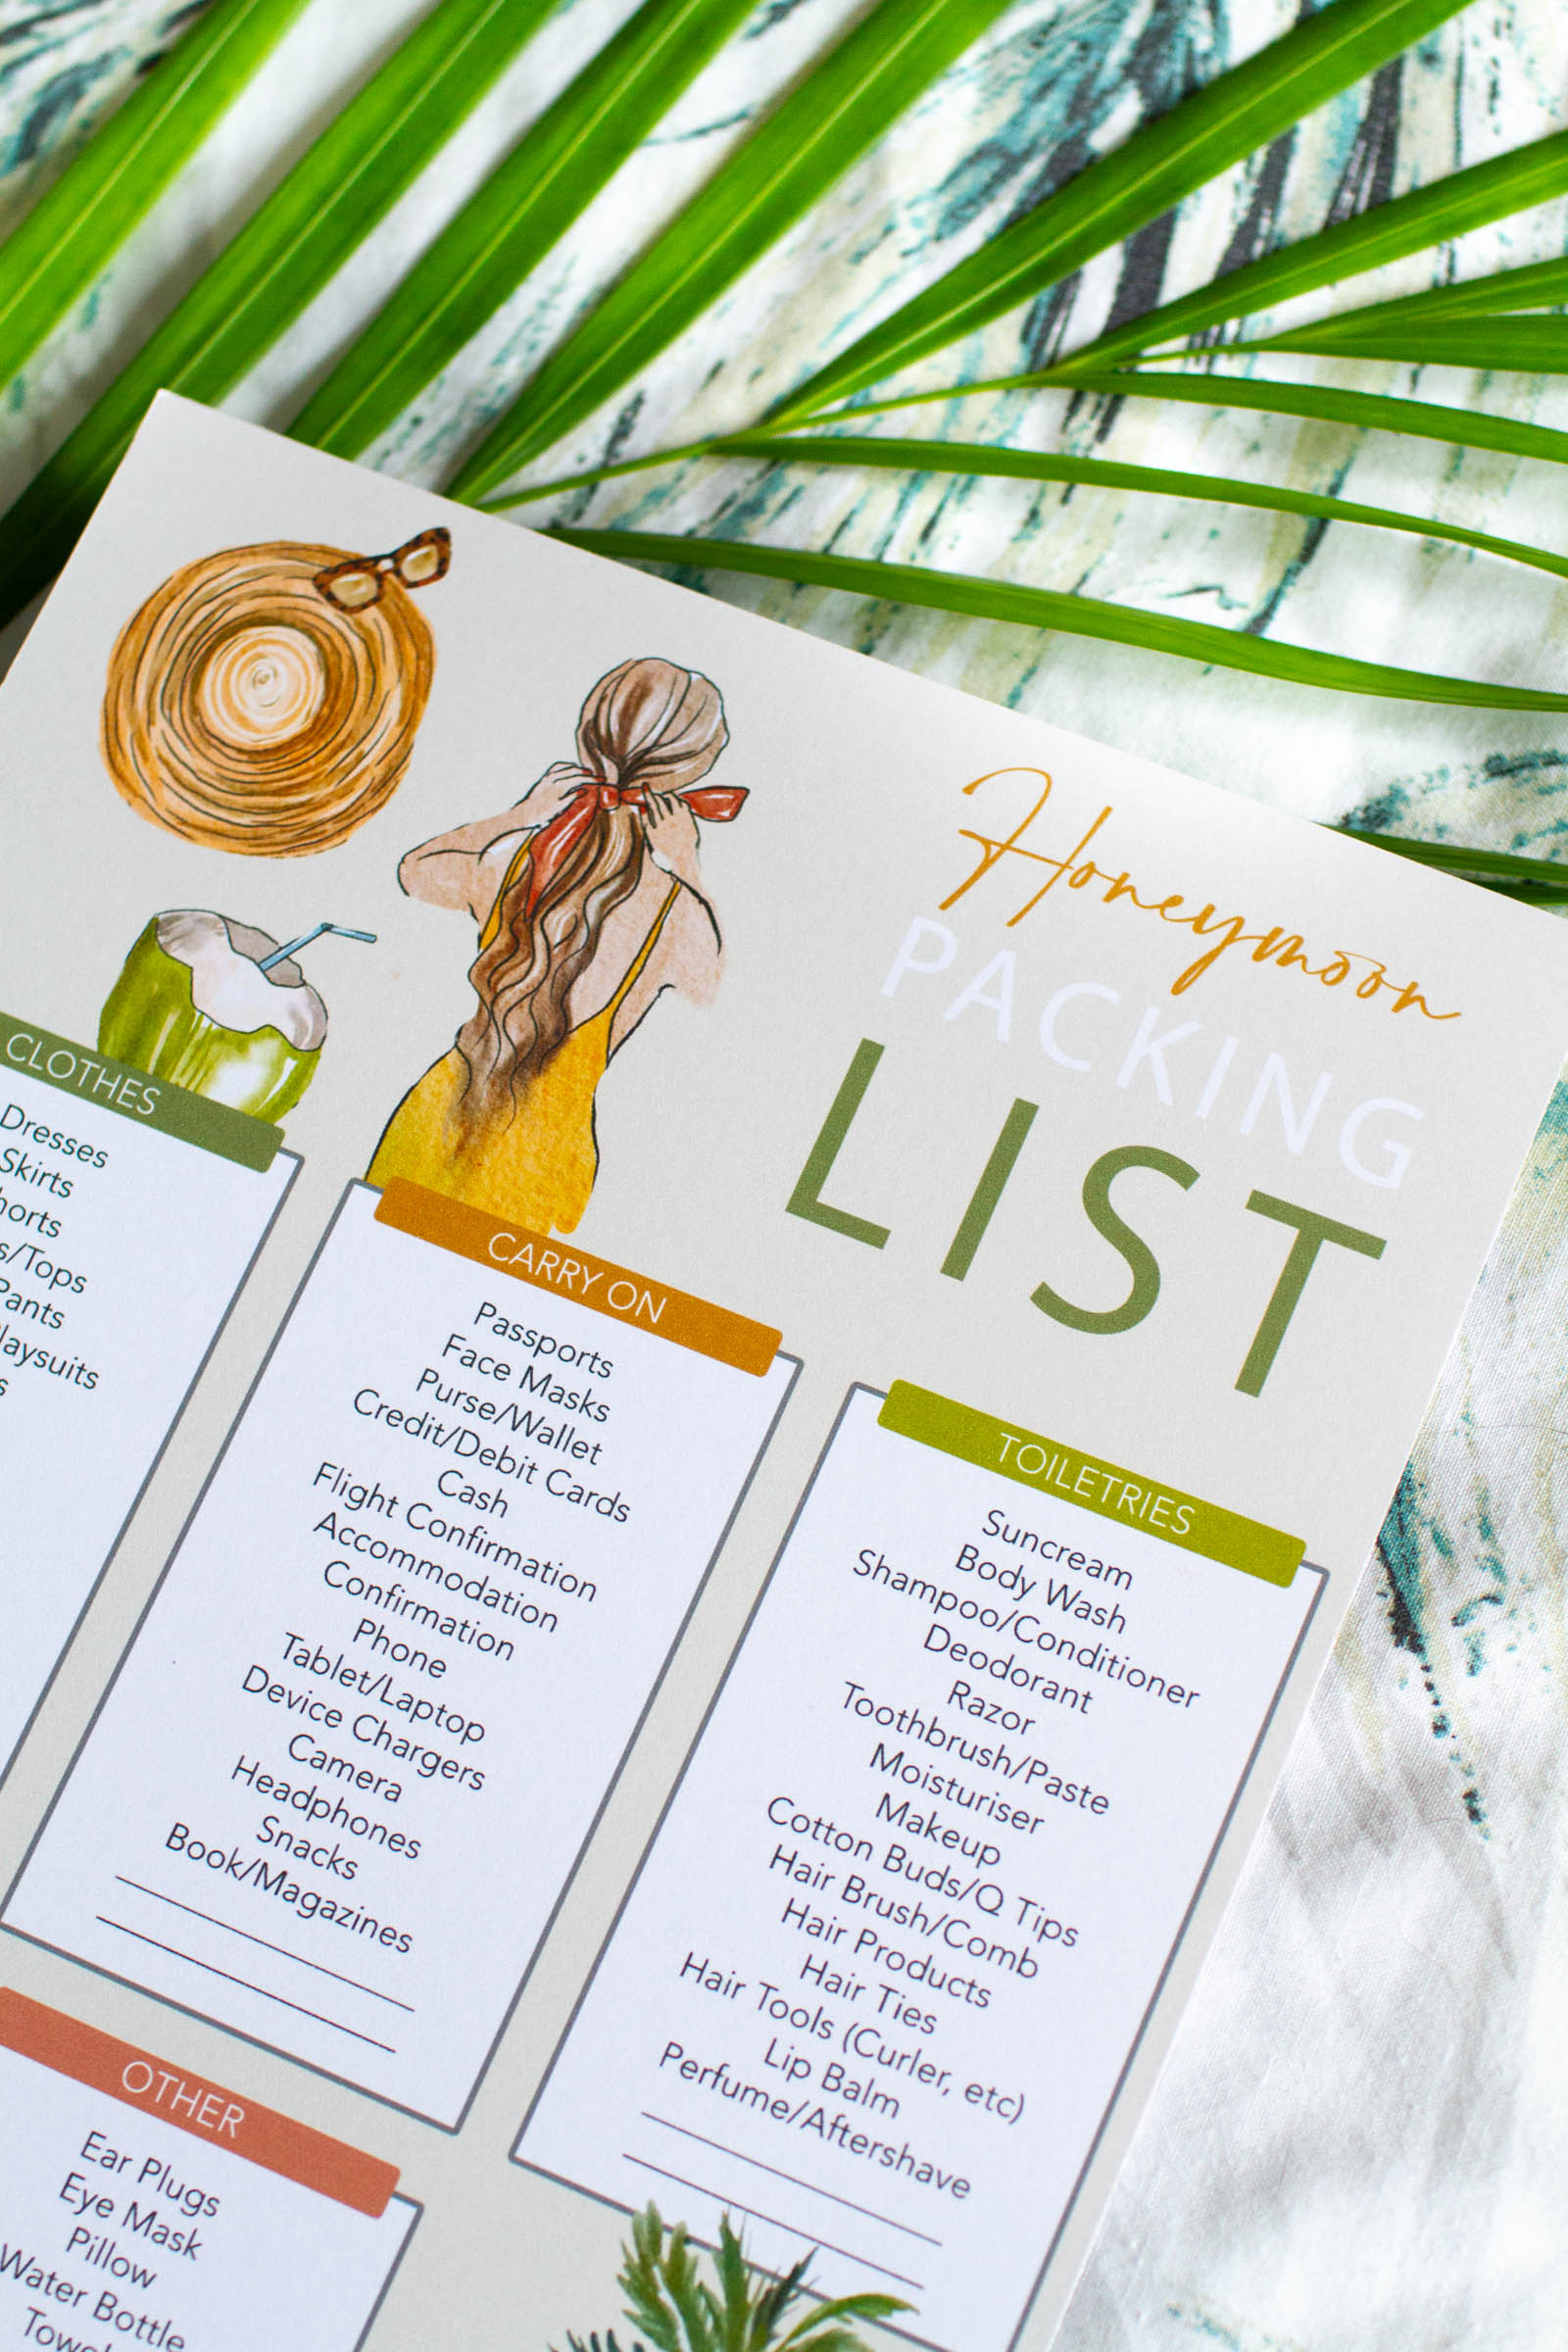 Honeymoon
PACKING
LIST
CLOTHES
Dresses
Skirts
Pants
CARRY ON
Passports
Face Masks
Purse/Wallet
Credit/Debit Cards
Cash
Flight Confirmation
Accommodation
Confirmation
Phone
Tablet/Laptop
Device Chargers
Camera
Headphones
Snacks
Book/Magazines
TOILETRIES
Suncream
Body Wash
Shampoo/Conditioner
Deodorant
Razor
Toothbrush/Paste
Moisturiser
Makeup
Cotton Buds/Q Tips
Hair Brush/Comb
Hair Products
Hair Ties
Hair Tools (Curler, etc)
Lip Balm
Perfume/Aftershave
OTHER
Ear Plugs
Eye Mask
Pillow
Water Bottle